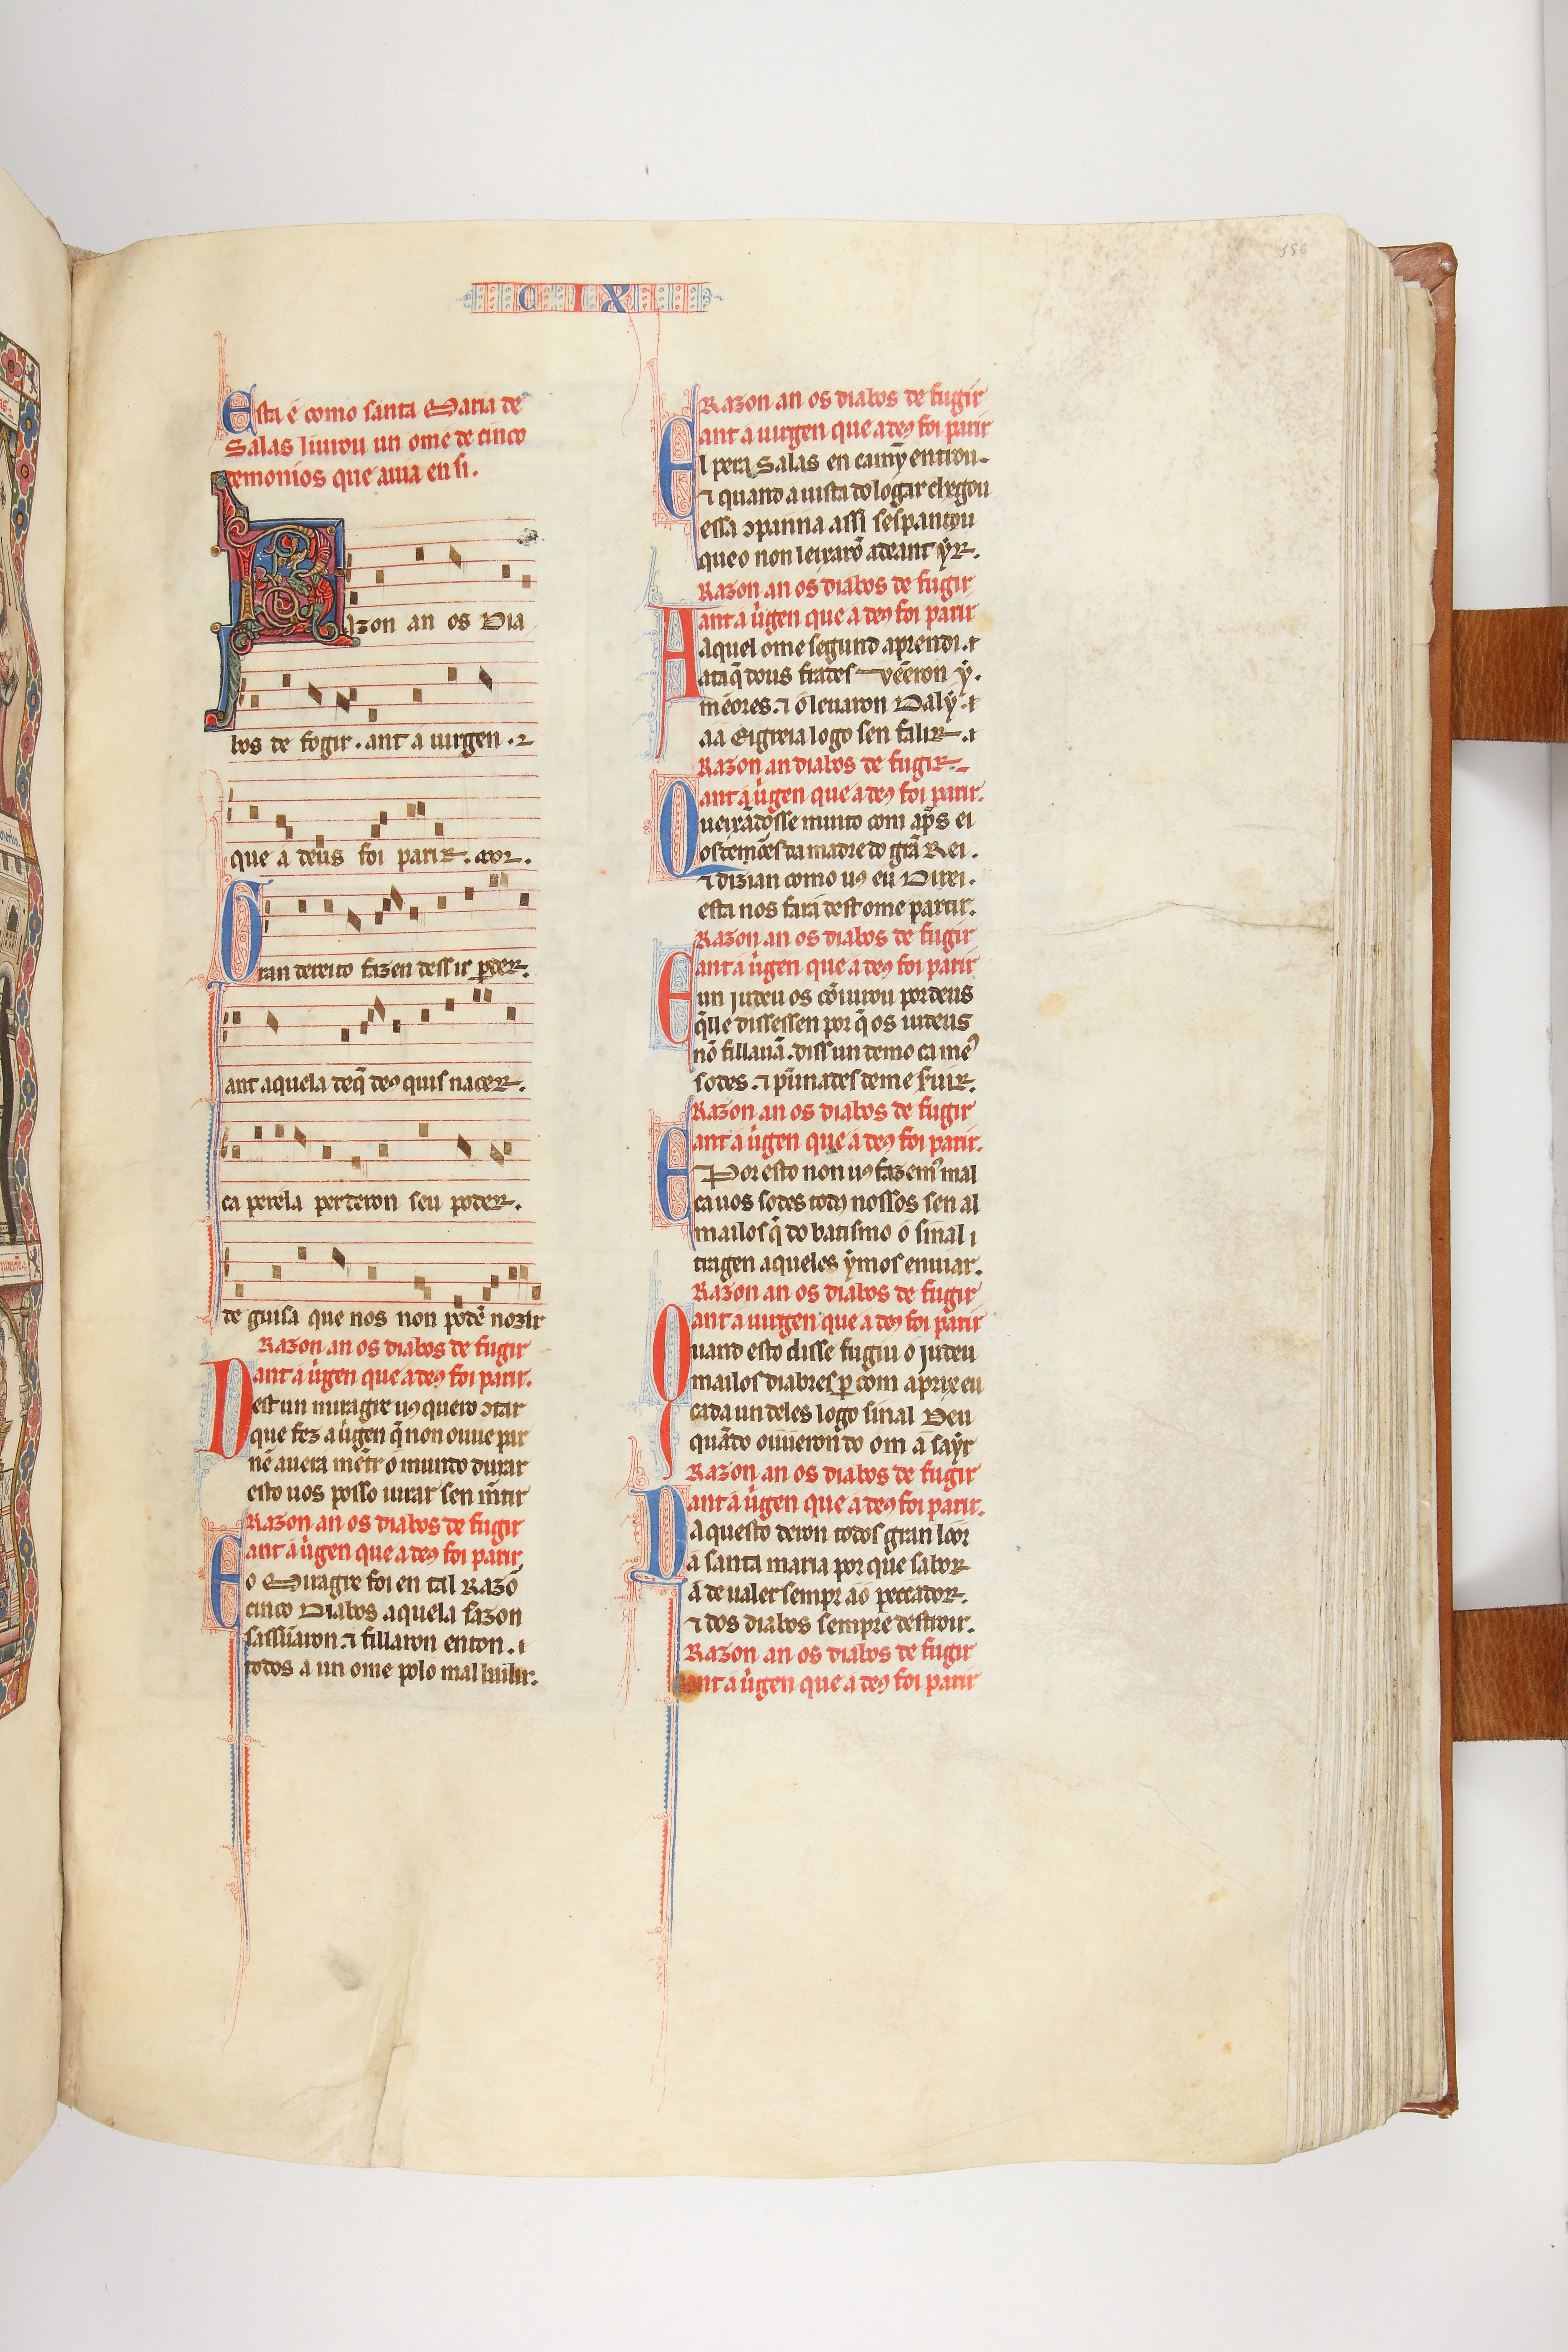 156
C I X
Esta é como santa Maria de
Salas liurou un ome de cinco
demonios que auia en si.
Razon an os Dia
bos de fogir. ant a uirgen. 
que a deus foi parir.
Gran dereito fazen dessir p̄der.
ant aquela deq̄ deꝯ quis nacer.
ca perela perderon seu poder.
de guisa que nos non podē nozir
Razon an os diabos de fugir
ant a uirgen que a deꝯ foi parir.
Dest un miragre uꝯ quero ↄtar
que fez a uirgen q̄ non ouue par
nē auera mētr o mundo durar
esto uos posso iurar sen mētir
Razon an os diabos de fugir
ant a uirgen que a deꝯ foi parir
E o Miragre foi en tal Razō
cinco Diabos aquela sazon
sassūaron. ⁊ fillaron enton. ⁊
todos a un ome polo mal bailir.
Razon an os diabos de fugir
ant a uirgen que a deꝯ foi parir
El pera Salas en camȳ entrou.
⁊ quand a uista do logar chegou
essa ↄpanna assi sespantou
que o non leixarō adeant ẏr.
Razon an os diabos de fugir
ant a uirgen que a deꝯ foi parir
Aaquel ome segund aprendi. ⁊
ataq̄ dous frades uēeron ẏ.
mēores. ⁊ o leuaron Dalẏ. ⁊
aa Eigreia logo sen falir. ⁊
Razon an diabos de fugir
ant a uirgen que a deꝯ foi parir.
Queixādosse muito com ap̄s ei
os demões da madre do grā Rei.
⁊ dizian como uꝯ eu Direi.
esta nos fara dest ome partir.
Razon an os diabos de fugir
ant a uirgen que a deꝯ foi parir
E un judeu os cōiurou por deus
q̄lle dissessen por q̄ os iudeus
nō fillauā. diss un demo ca meꝯ
sodes. ⁊ pūnades de me seruir.
Razon an os diabos de fugir
ant a uirgen que a deꝯ foi parir.
E Por esto non uꝯ fazemꝯ mal
ca uos sodes todꝯ nossos sen al
mailos q̄ do batismo o sinal ⁊
tragen aqueles ẏmos enuiar.
Razon an os diabos de fugir
ant a uirgen que a deꝯ foi parir
Quand esto disse fugiu o judeu
mailos diabres ꝑ com aprix eu
cada un deles logo sinal Deu
quādo ouueron do om a saẏr
Razon an os diabos de fugir
ant a uirgen que a deꝯ foi parir.
Da questo deron todos gran loor
a santa maria por que sabor
a de ualer sempr ao peccador.
⁊ dos diabos sempre destroir.
Razon an os diabos de fugir
ant a uirgen que a deꝯ foi parir